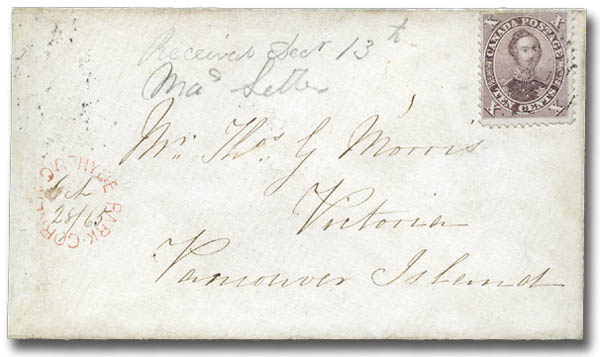 Received Decr 13th
Mas Letter
CANADA POSTAGE
TEN CENTS
X X X X
Mr. Thos G Morris
Victoria
Vancouver Island
HYDE PARK CORNER
Oct
28/65